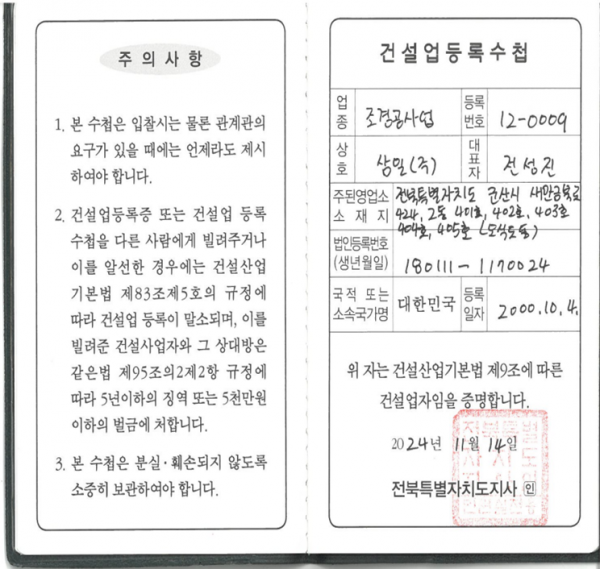 주 의 사 항
1. 본 수첩은 입찰시는 물론 관계관의
요구가 있을 때에는 언제라도 제시
하여야 합니다.
2. 건설업등록증 또는 건설업 등록
수첩을 다른 사람에게 빌려주거나
이를 알선한 경우에는 건설산업
기본법 제83조제5호의 규정에
따라 건설업 등록이 말소되며, 이를
빌려준 건설사업자와 그 상대방은
같은법 제95조의2제2항 규정에
따라 5년이하의 징역 또는 5천만원
이하의 벌금에 처합니다.
3. 본 수첩은 분실·훼손되지 않도록
소중히 보관하여야 합니다.
건설업등록수첩
업종 조경공사업 등록번호 12-0009
상호 상일(주) 대표자 전성진
주된영업소 전북특별자치도 군산시 새만금북로
소 재 지 424, 2동 401호, 402호, 403호
404호, 405호 (오식도동)
법인등록번호
(생년월일) 180111-1170024
국적 또는 소속국가명 대한민국 등록일자 2000.10.4.
위 자는 건설산업기본법 제9조에 따른
건설업자임을 증명합니다.
2024년 11월 14일
전북특별자치도지사 인